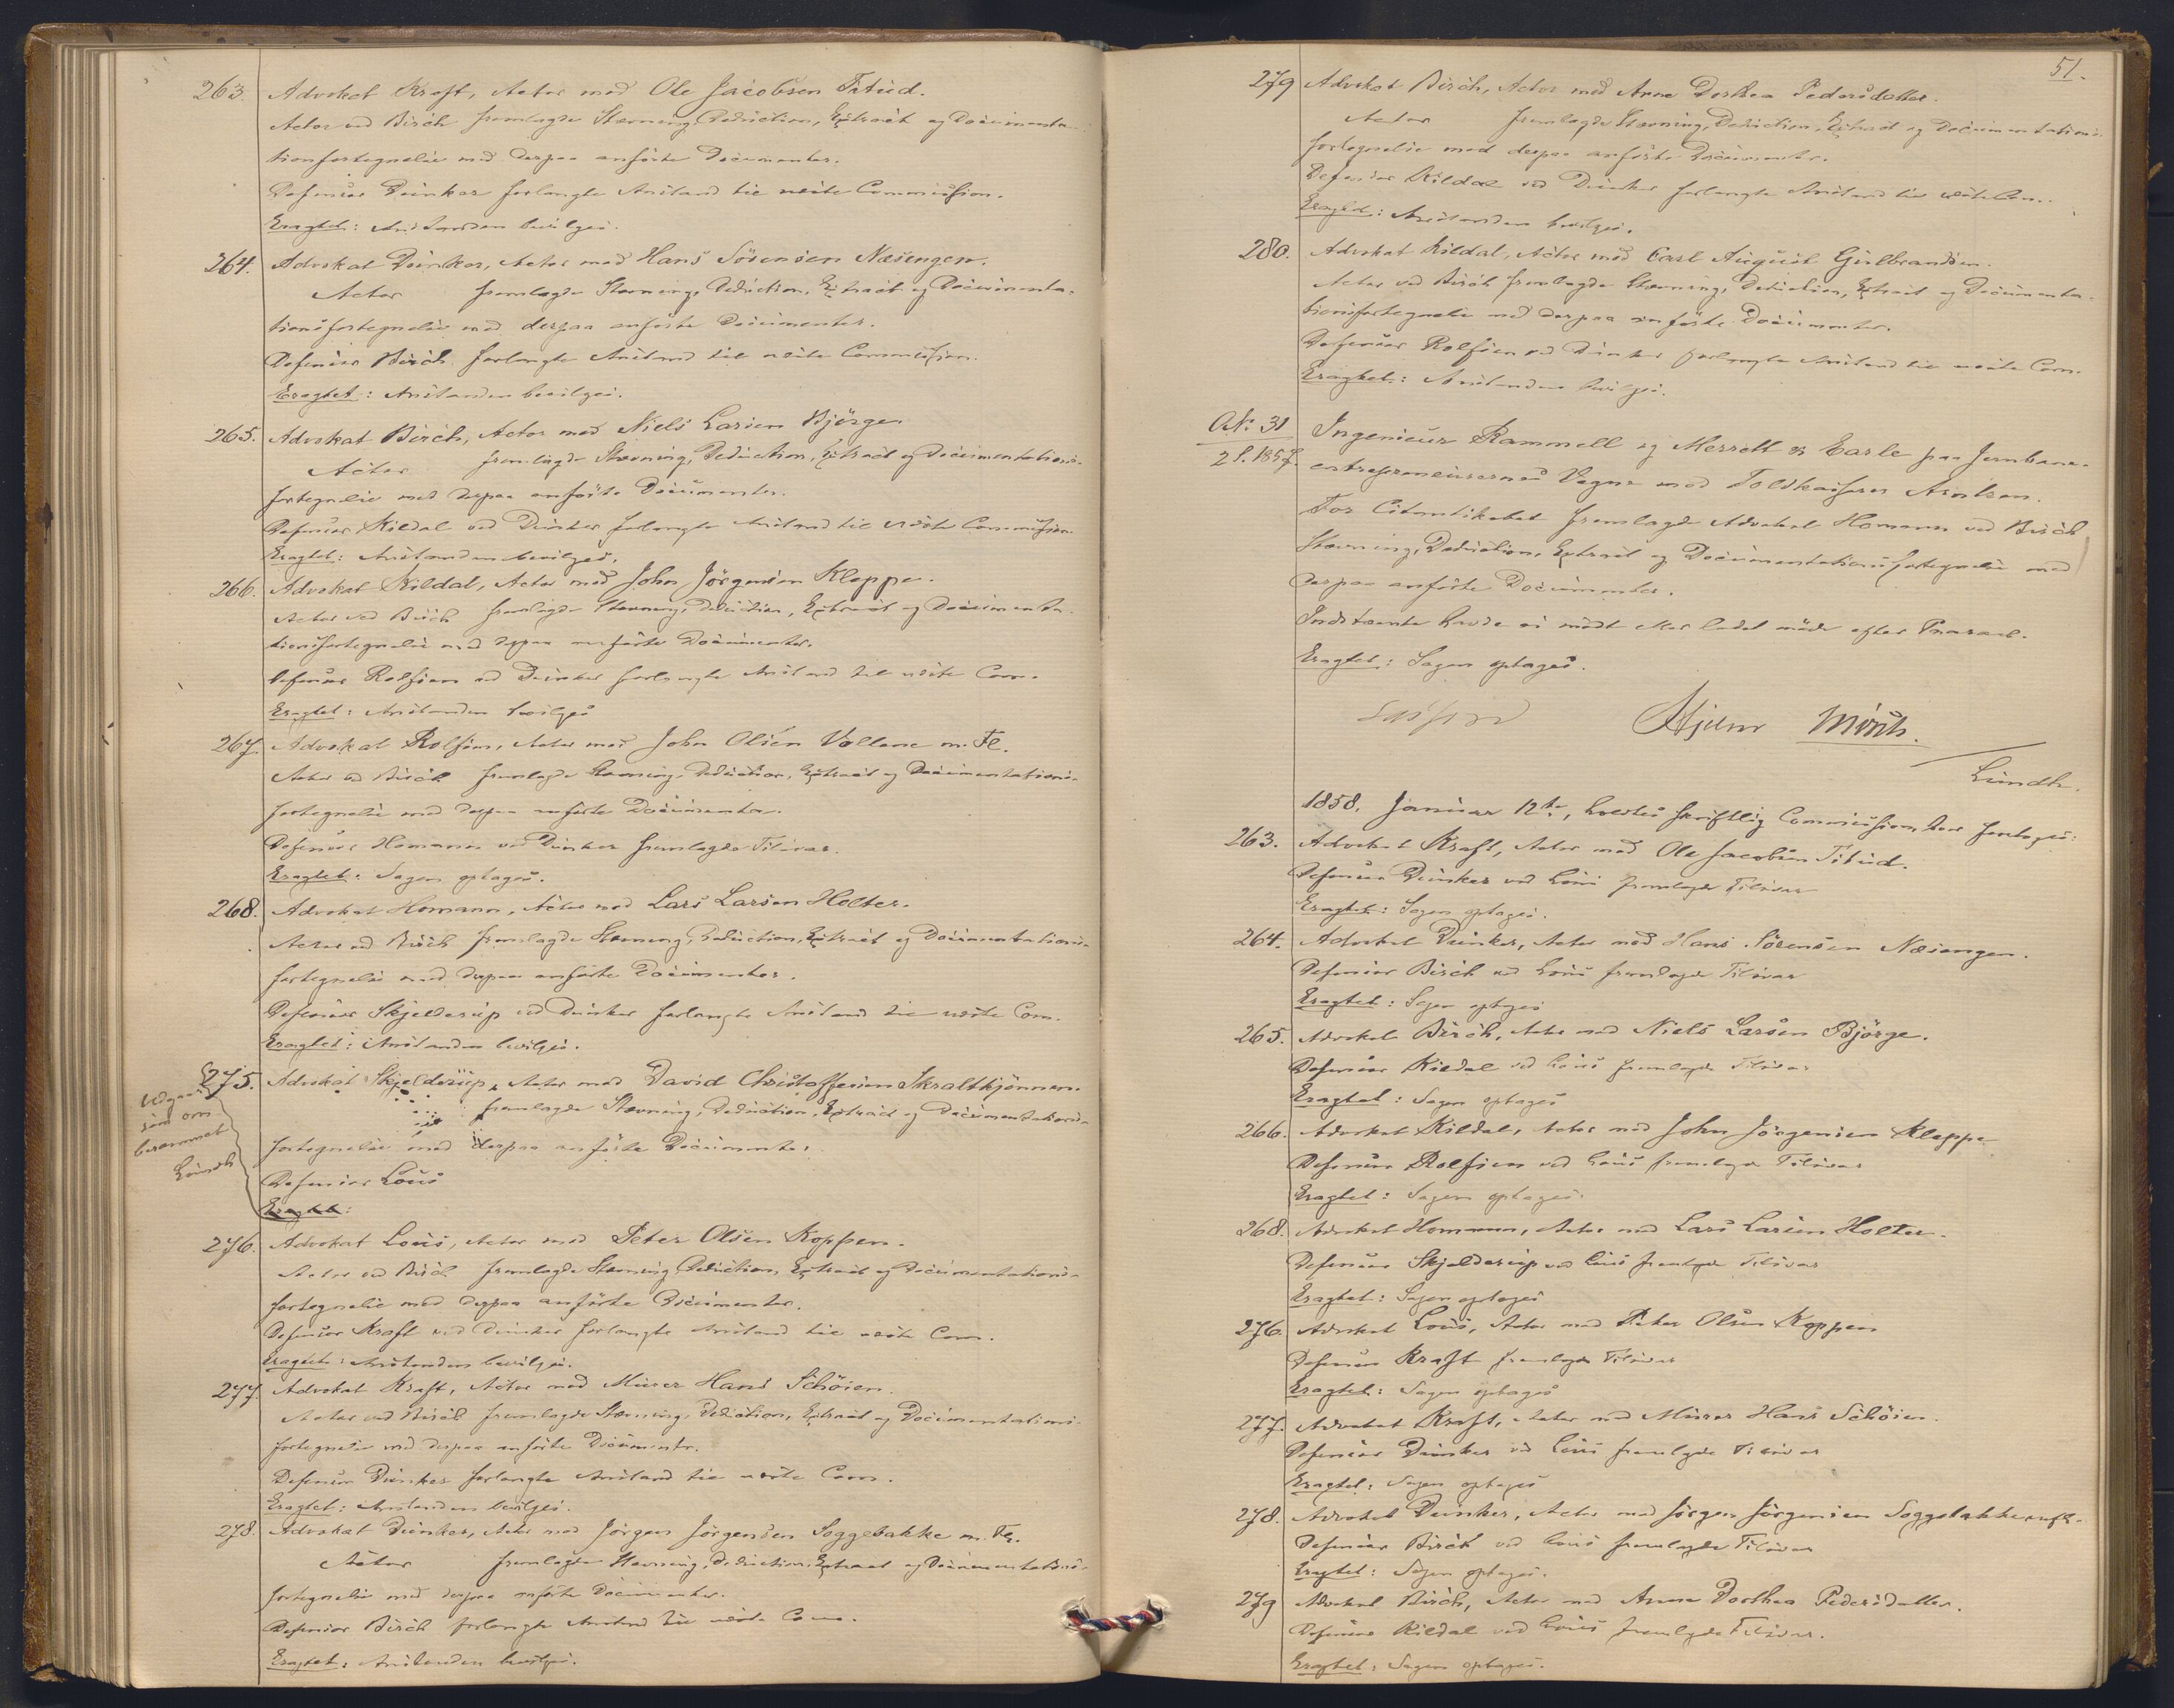 263. Advokat Kraft, Actor mod Ole Jacobsen Titrud.
Actor ved Birch fremlagde Stevning, Deduction, Extract og Documenta-
tionsfortegnelse med derpaa anförte Documenter.
Defensor Dunker forlangte Anstand til næste Commission.
Eragtet: Anstanden bevilges.
264. Advokat Dunker, Actor mod Hans Sörensen Næsengen.
Actor fremlagde Stevning, Deduction, Extract og Documenta-
tionsfortegnelse med derpaa anförte Documenter.
Defensor Birch forlangte Anstand til næste Commission.
Eragtet: Anstanden bevilges.
265. Advokat Birch, Actor mod Niels Larsen Bjørge
Actor fremlagde Stevning, Deduction, Extract og Documentations-
fortegnelse med derpaa anförte Documenter.
Defensor Kildal ved Dunker forlangte Anstand til næste Commission.
Eragtet: Anstanden bevilges.
266. Advokat Kildal, Actor mod John Jörgensen Kleppe.
Actor ved Birch fremlagde Stevning, Deduction, Extract og Documenta-
tionsfortegnelse med derpaa anförte Documenter.
Defensor Rolfsen ved Dunker forlangte Anstand til næste Com.
Eragtet: Anstanden bevilges
267. Advokat Rolfsen, Actor mod John Olsen Vollene m. Fl.
Actor ved Birch fremlagde Stevning, Deduction, Extract og Documentations-
fortegnelse med derpaa anförte Documenter.
Defensor Homann ved Dunker fremlagde Tilsvar.
Eragtet: Sagen optages.
268. Advokat Homann, Actor mod Lars Larsen Holter.
Actor ved Birch fremlagde Stevning, Deduction, Extract og Documentations-
fortegnelse med derpaa anförte Documenter.
Defensor Skjelderup ved Dunker forlangte Anstand til næste Com.
Eragtet: Anstanden bevilges.
275. Advokat Skjelderup, Actor mod David Christoffersen Skraltkjønnen.
Udgaar
som om
berammet
Lundh
fremlagde Stevning, Deduction, Extract og Documentations-
fortegnelse med derpaa anförte Documenter
Defensor Lous
Eragtet:
276. Advokat Lous, Actor mod Peter Olsen Koppen.
Actor ved Birch fremlagde Stevning, Deduction, Extract og Documentations-
fortegnelse med derpaa anförte Documenter.
Defensor Kraft ved Dunker forlangte Anstand til næste Com.
Eragtet: Anstanden bevilges.
277. Advokat Kraft, Actor mod Murer Hans Schöien.
Actor ved Birch fremlagde Stevning, Deduction, Extract og Documentations-
fortegnelse med derpaa anförte Documenter.
Defensor Dunker forlangte Anstand til næste Com.
Eragtet: Anstanden bevilges.
278. Advokat Dunker, Actor mod Jörgen Jörgensen Soggebakke m. Fl.
Actor fremlagde Stevning, Deduction, Extract og Documentations-
fortegnelse med derpaa anförte Documenter.
Defensor Birch forlangte Anstand til næste Com.
Eragtet: Anstanden bevilges.
51.
279 Advokat Birch, Actor mod Anne Dorthea Pedersdatter.
Actor fremlagde Stevning, Deduction, Extract og Documentations-
fortegnelse med derpaa anförte Documenter.
Defensor Kildal ved Dunker forlangte Anstand til næste Com.
Eragtet: Anstanden bevilges.
280. Advokat Kildal, Actor mod Carl August Gulbrandsen.
Actor ved Birch fremlagde Stevning, Deduction, Extract og Documenta-
tionsfortegnelse med derpaa anförte Documenter.
Defensor Rolfsen ved Dunker forlangte Anstand til næste Com.
Eragtet: Anstanden bevilges.
A. No. 31
2 S. 1857. Ingenieur Rammell og Merrett & Earle paa Jernbane-
entrepreneurernes Vegne mod Toldkasserer Arntzen.
For Citantskabet fremlagde Advokat Homann ved Birch
Stevning, Deduction, Extract og Documentationsfortegnelse med
derpaa anförte Documenter.
Indstevnte havde ei mödt eller ladet möde efter Paaraab.
Eragtet: Sagen optages.
Hjelm Mörch.
Lundh.
1858. Januar 12te, holdtes skriftlig Commission, hvor foretoges:
263. Advokat Kraft, Actor mod Ole Jacobsen Titrud.
Defensor Dunker ved Lous fremlagde Tilsvar
Eragtet: Sagen optages.
264. Advokat Dunker, Actor mod Hans Sörensen Næsengen.
Defensor Birch ved Lous fremlagde Tilsvar
Eragtet: Sagen optages
265. Advokat Birch, Actor mod Niels Larsen Bjørge.
Defensor Kildal ved Lous fremlagde Tilsvar
Eragtet: Sagen optages
266. Advokat Kildal, Actor mod John Jörgensen Kleppe
Defensor Rolfsen ved Lous fremlagde Tilsvar
Eragtet: Sagen optages.
268. Advokat Homann, Actor mod Lars Larsen Holter.
Defensor Skjelderup ved Lous fremlagde Tilsvar
Eragtet: Sagen optages
276. Advokat Lous, Actor mod Peter Olsen Koppen
Defensor Kraft fremlagde Tilsvar
Eragtet: Sagen optages
277. Advokat Kraft, Actor mod Murer Hans Schöien.
Defensor Dunker ved Lous fremlagde Tilsvar
Eragtet: Sagen optages
278. Advokat Dunker, Actor mod Jörgen Jörgensen Soggebakke m. Fl.
Defensor Birch ved Lous fremlagde Tilsvar
Eragtet: Sagen optages.
279 Advokat Birch, Actor mod Anne Dorthea Pedersdatter.
Defensor Kildal ved Lous fremlagde Tilsvar.
Eragtet: Sagen optages.